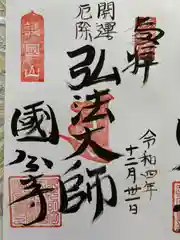 奉拝
開運
厄除
弘法大師
令和四年
十二月卅一日
護國山
國分寺